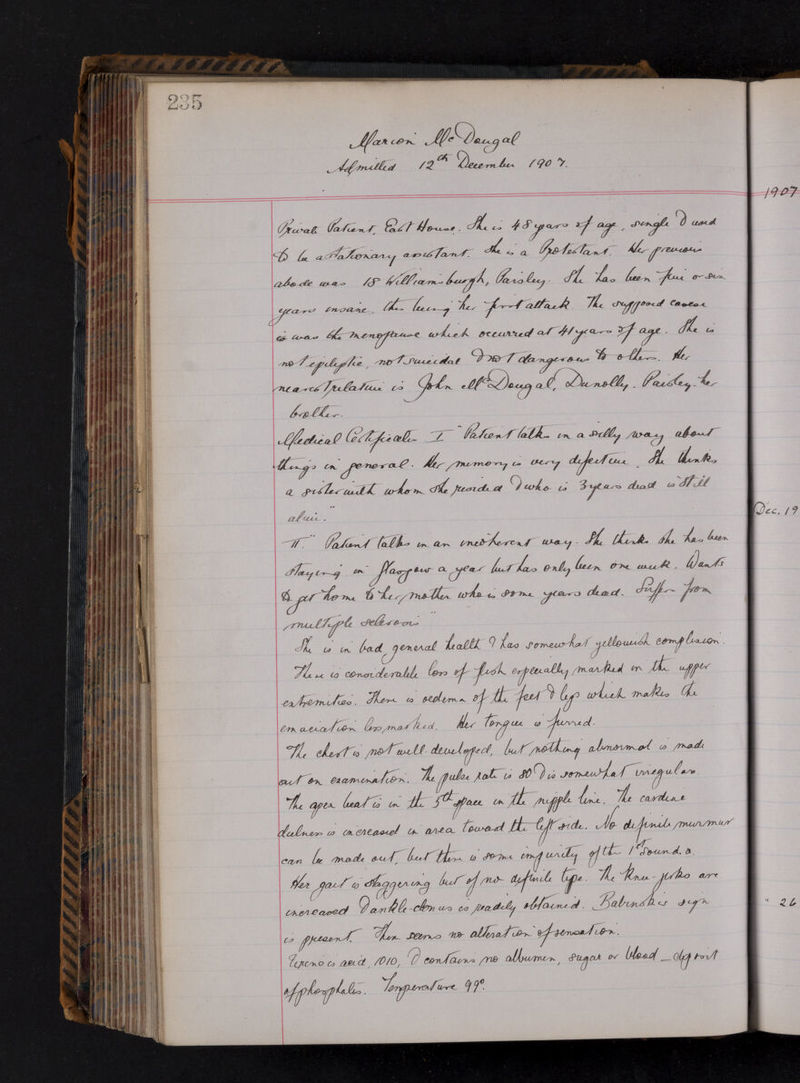 235
Marion McDougal
Admitted 12th December 1907.
1907
Private Patient. East House. She is 48 years of age, single & used
to be a stationary assistant. She is a Protestant. Her previous
abode was 18 Williamsburgh, Paisley. She has been five or six
years insane, this being her first attack. The supposed cause
is was the menopause which occurred at 41 years of age. She is
not epileptic, not suicidal & not dangerous to others. Her
nearest relative is John McDougal, Dunolly, Paisley, her
brother.
Medical Certificates I "Patient talks in a silly way about
things in general. Her memory is very defective. She thinks
a sister with whom she resided & who is 3 years dead is still
alive."
Dec. 19
II. "Patient talks in an incoherent way. She thinks she has been
staying in Glasgow a year but has only been one week. Wants
to get home to her mother who is some years dead. Suffers from
multiple sclerosis"
She is in bad general health & has somewhat yellowish complexion.
There is considerable loss of flesh especially marked in the upper
extremities. There is oedema of the feet & legs which makes the
emaciation less marked. Her tongue is furred.
The chest is not well developed, but nothing abnormal is made
out on examination. The pulse rate is 80 & is somewhat irregular.
The apex beat is in the 5th space in the nipple line. The cardiac
dulness is increased in area toward the left side. No definite murmur
can be made out, but there is some impurity of the 1st Sound.
Her gait is staggering but of no definite type. The knee-jerks are
increased & ankle-clonus is readily obtained. Babinski's sign
" 26
is present. There seems no alteration of sensation.
Urine is acid, 1010, & contains no albumen, sugar or blood _ deposit
of phosphates. Temperature 99°.